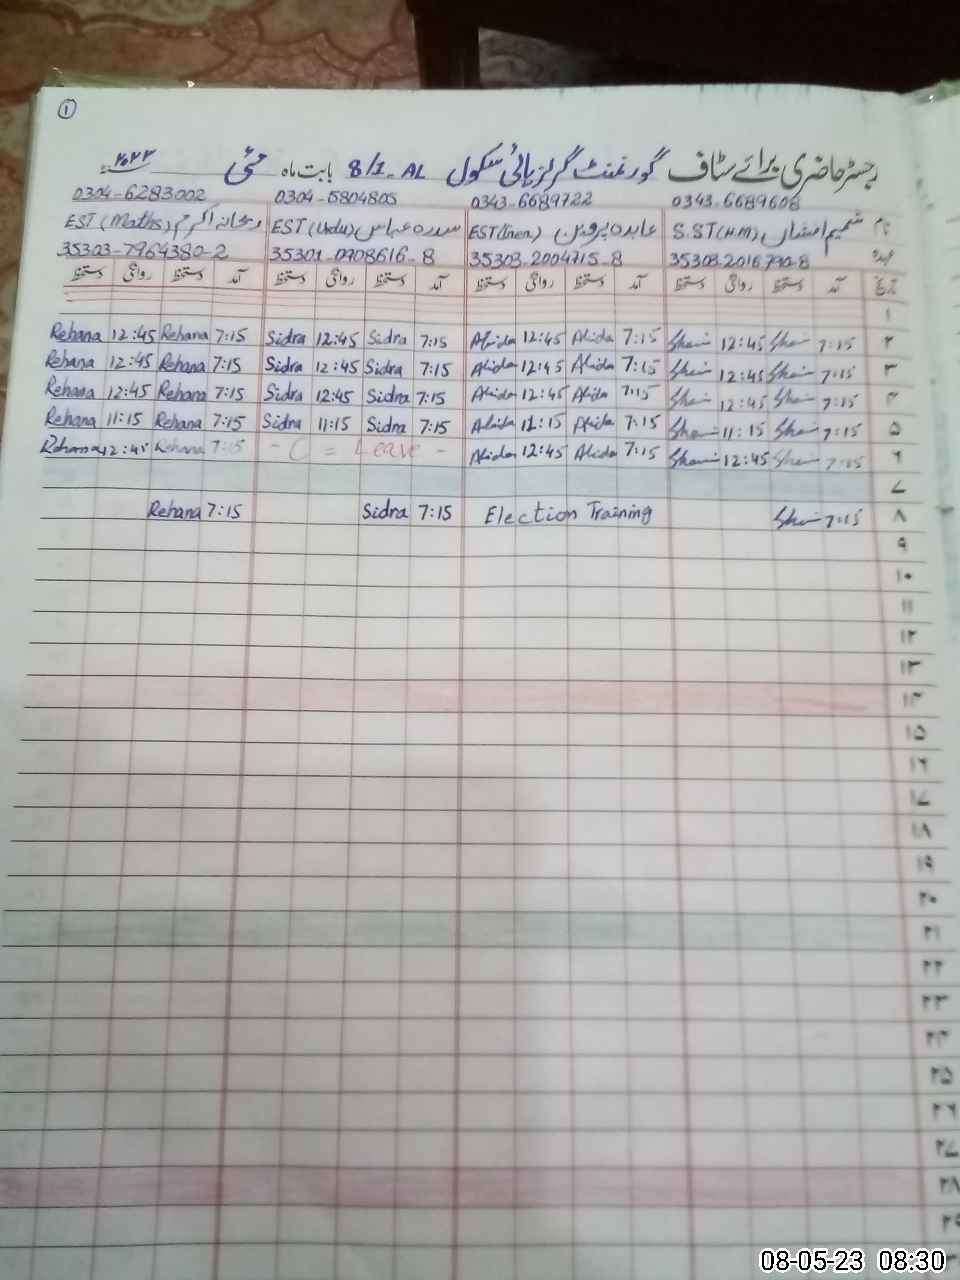 ۱
رجسٹر حاضری برائے سٹاف گورنمنٹ گرلز ہائی سکول 8/1-AL بابت ماہ مئی ۲۰۲۳
0343-6689608 0343-6689722 0304-6804805 0304-6283002
نام شمیم افشاں S.ST(H.M) عابدہ پروین EST سدرہ عباس EST (Urdu) ریحانہ اکرم EST (Maths)
عہدہ 35303-2016790-8 35303-2004715-8 35301-0908616-8 35303-7964380-2
تاریخ آمد دستخط روانگی دستخط آمد دستخط روانگی دستخط آمد دستخط روانگی دستخط آمد دستخط روانگی دستخط
۱
Rehana 12:45 Rehana 7:15 Sidra 12:45 Sidra 7:15 Abida 12:45 Abida 7:15 12:45 7:15 ۲
Rehana 12:45 Rehana 7:15 Sidra 12:45 Sidra 7:15 Abida 12:45 Abida 7:15 12:45 7:15 ۳
Rehana 12:45 Rehana 7:15 Sidra 12:45 Sidra 7:15 Abida 12:45 Abida 7:15 12:45 7:15 ۴
Rehana 11:15 Rehana 7:15 Sidra 11:15 Sidra 7:15 Abida 11:15 Abida 7:15 11:15 7:15 ۵
Rehana 12:45 Rehana 7:15 - C = Leave - Abida 12:45 Abida 7:15 12:45 7:15 ۶
۷
Rehana 7:15 Sidra 7:15 Election Training 7:15 ۸
۹
۱۰
۱۱
۱۲
۱۳
۱۴
۱۵
۱۶
۱۷
۱۸
۱۹
۲۰
۲۱
۲۲
۲۳
۲۴
۲۵
۲۶
۲۷
۲۸
۲۹
08-05-23 08:30